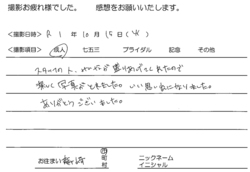 撮影お疲れ様でした。 感想をお願いいたします。
撮影日 R 1 年 10 月 15 日 (火)
撮影項目 成人 七五三 ブライダル 記念 その他
スタッフの方が盛りあげてくれたので
楽しく写真がとれました。いい思い出になりました。
ありがとうございました。
お住まい 市 町 村 ニックネーム イニシャル